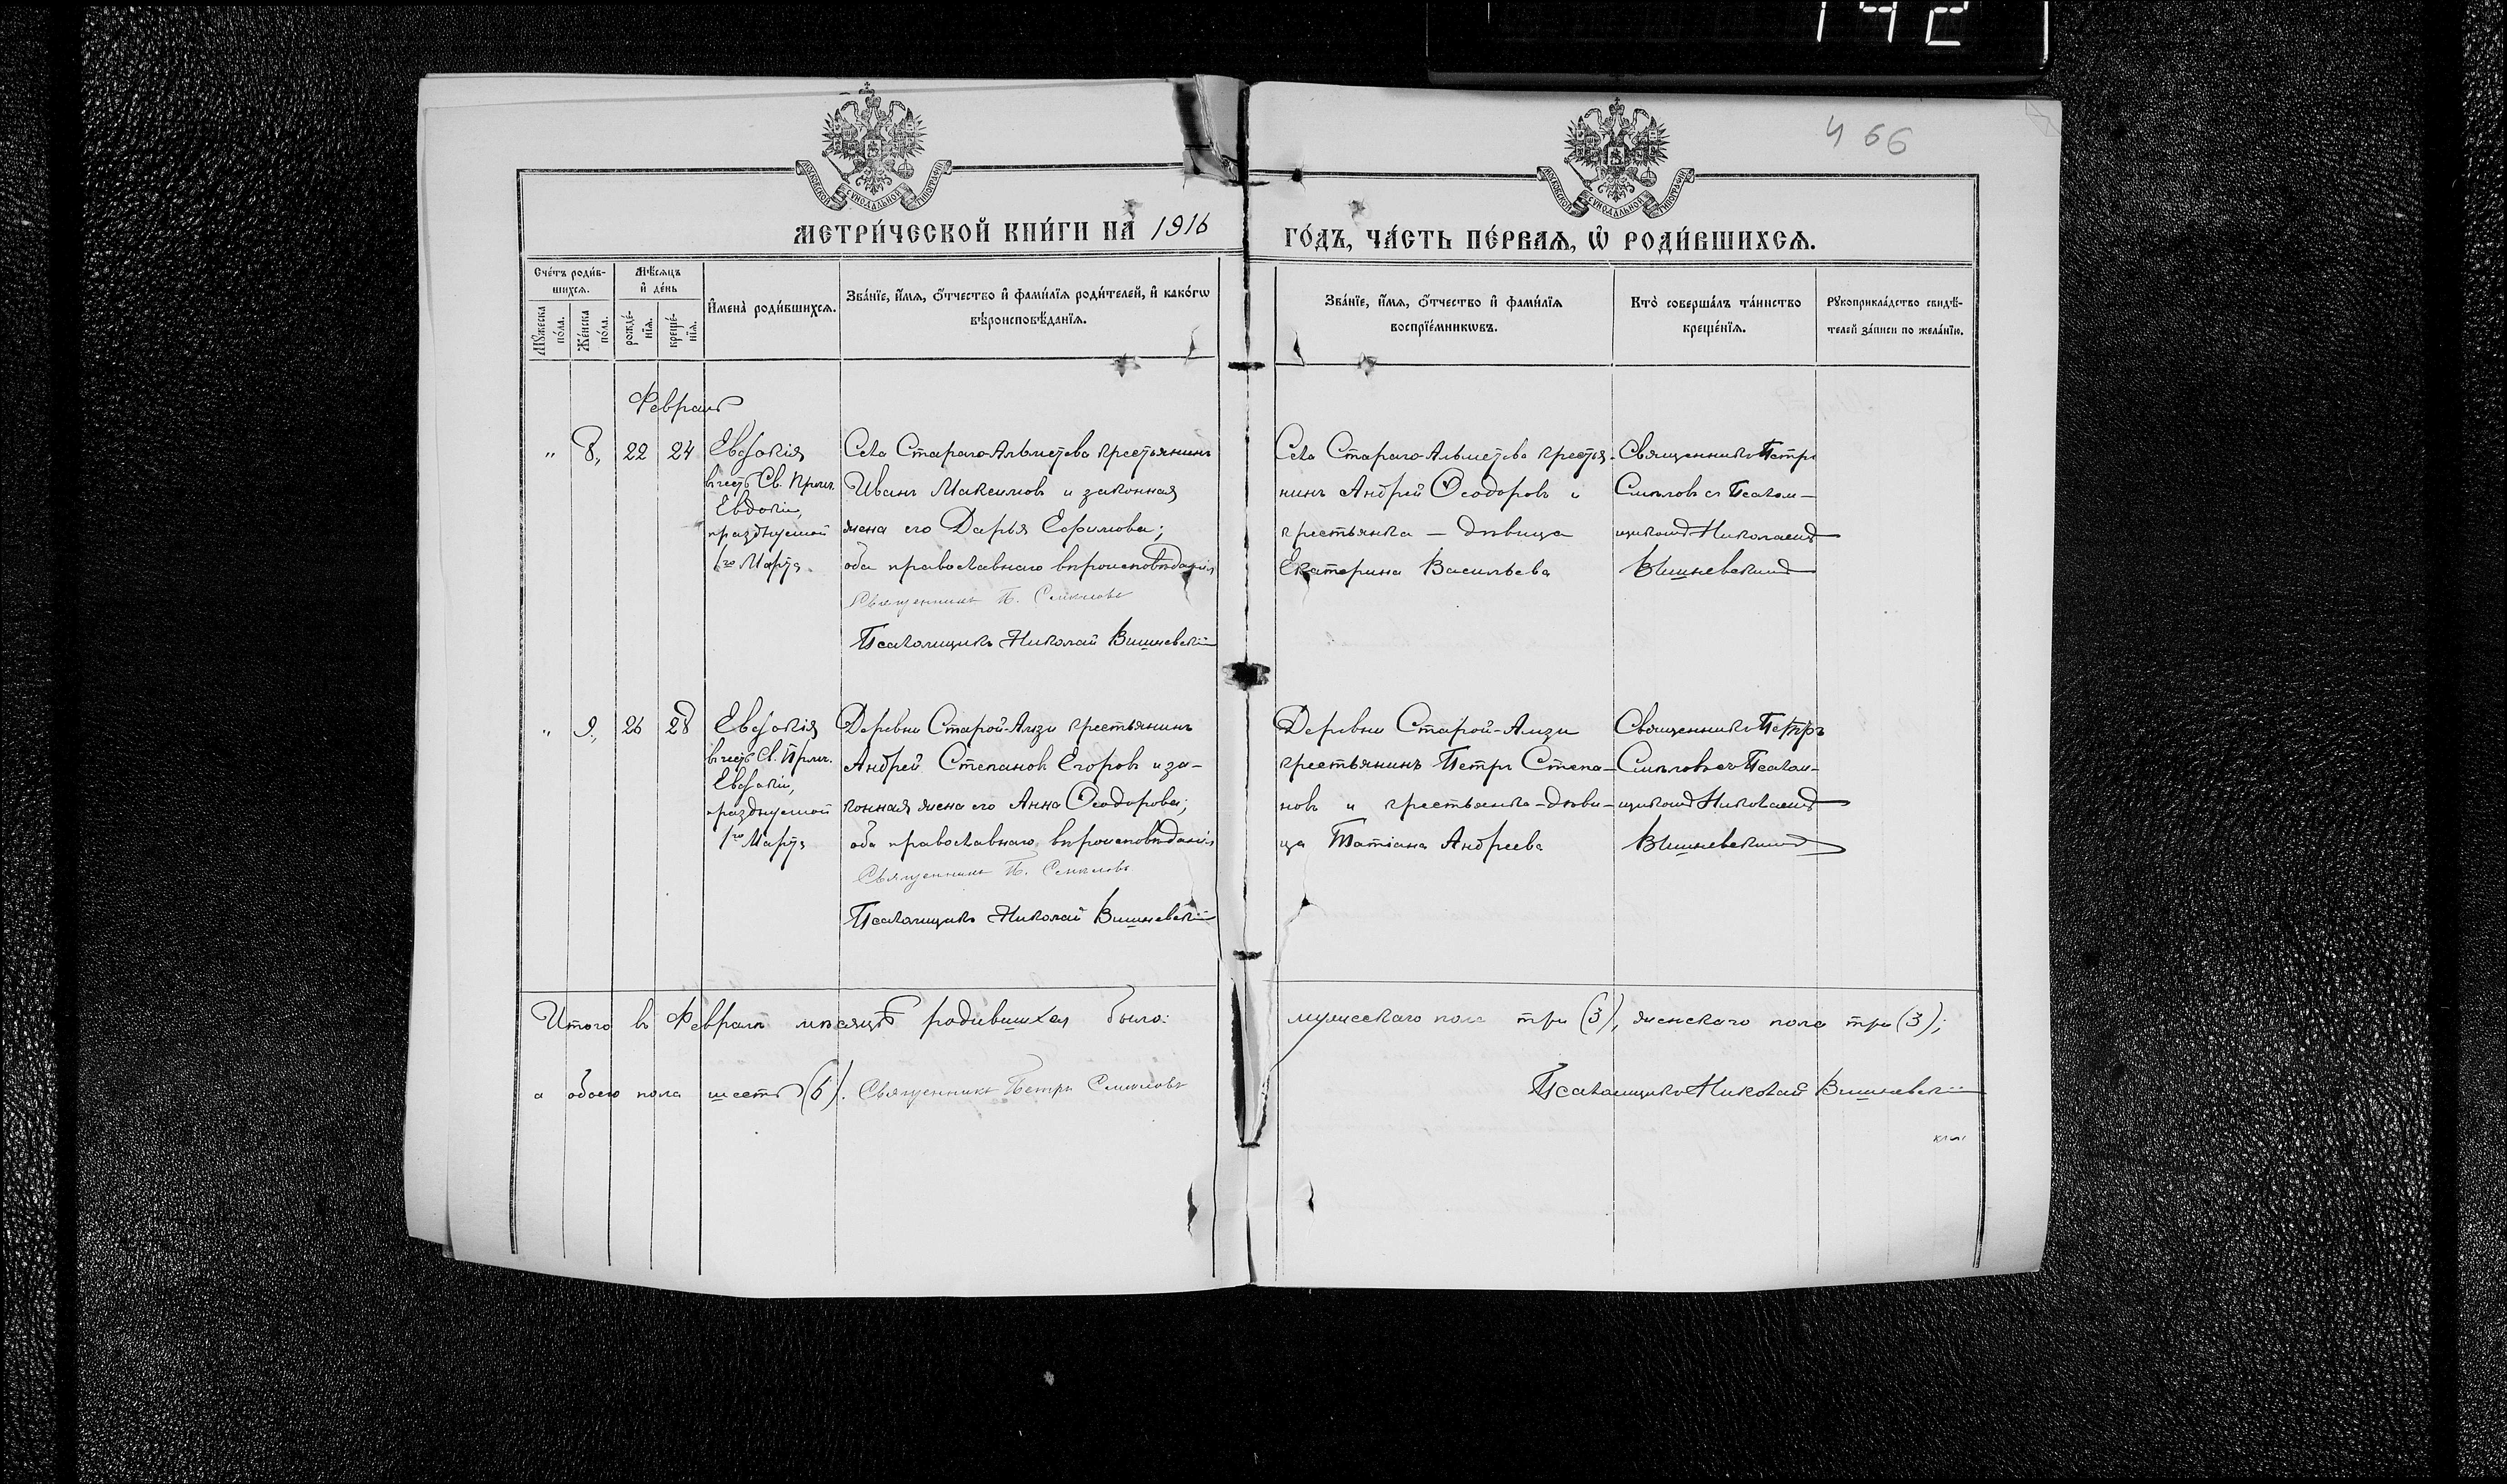 142
466
МОСКОВСКОЙ СѴНОДАЛЬНОЙ ТИПОГРАФІИ
МОСКОВСКОЙ СѴНОДАЛЬНОЙ ТИПОГРАФІИ
МЕТРИ́ЧЕСКОЙ КНИ́ГИ НА 1916
ГО́ДЪ, ЧА́СТЬ ПЕ́РВАѦ, Ѡ҆ РОДИ́ВШИХСѦ.
Сче́тъ роди́в-
шихсѧ.
Мꙋ́жеска по́ла.
Же́нска по́ла.
Мѣ́сѧцъ
и҆ де́нь
рожде́-
нїѧ.
креще́-
нїѧ.
И҆мена̀ роди́вшихсѧ.
Зва́нїе, и҆́мѧ, ѻ҆́тчество и҆ фами́лїѧ роди́телей, и҆ како́гѡ
вѣроисповѣ́данїѧ.
Зва́нїе, и҆́мѧ, ѻ҆́тчество и҆ фами́лїѧ
воспрїе́мникѡвъ.
Кто̀ соверша́лъ та́инство
креще́нїѧ.
Рꙋкоприкла́дство свидѣ́-
телей за́писи по жела́нїю.
Февраль
" 8, 22 24 Евдокія
въ честь Св. Прмч.
Евдокіи,
празднуемой
1го Марта
Села Стараго-Альметева крестьянинъ
Иванъ Максимовъ и законная
жена его Дарья Ефимова;
оба православнаго вѣроисповѣданія
Священникъ П.
Псаломщикъ Николай Вишневскій
Села Стараго-Альметева крестья-
нинъ Андрей Ѳеодоровъ и
крестьянка – дѣвица
Екатерина Васильева
Священникъ Петръ
съ Псалом-
щикомъ Николаемъ
Вишневскимъ
" 9, 26 28 Евдокія
въ честь Св. Прмч.
Евдокіи,
празднуемой
1го Марта
Деревни Старой-Амзи крестьянинъ
Андрей Степановъ Егоровъ и за-
конная жена его Анна Ѳеодорова;
оба православнаго вѣроисповѣданія
Священникъ П.
Псаломщикъ Николай Вишневскій
Деревни Старой-Амзи
крестьянинъ Петръ Степа-
новъ и крестьянка-дѣви-
ца Татіана Андреева
Священникъ Петръ
съ Псалом-
щикомъ Николаемъ
Вишневскимъ
Итого въ Февралѣ мѣсяцѣ родившихся было:
мужескаго пола три (3), женскаго пола три (3);
а обоего пола шесть (6). Священникъ Петръ
Псаломщикъ Николай Вишневскій